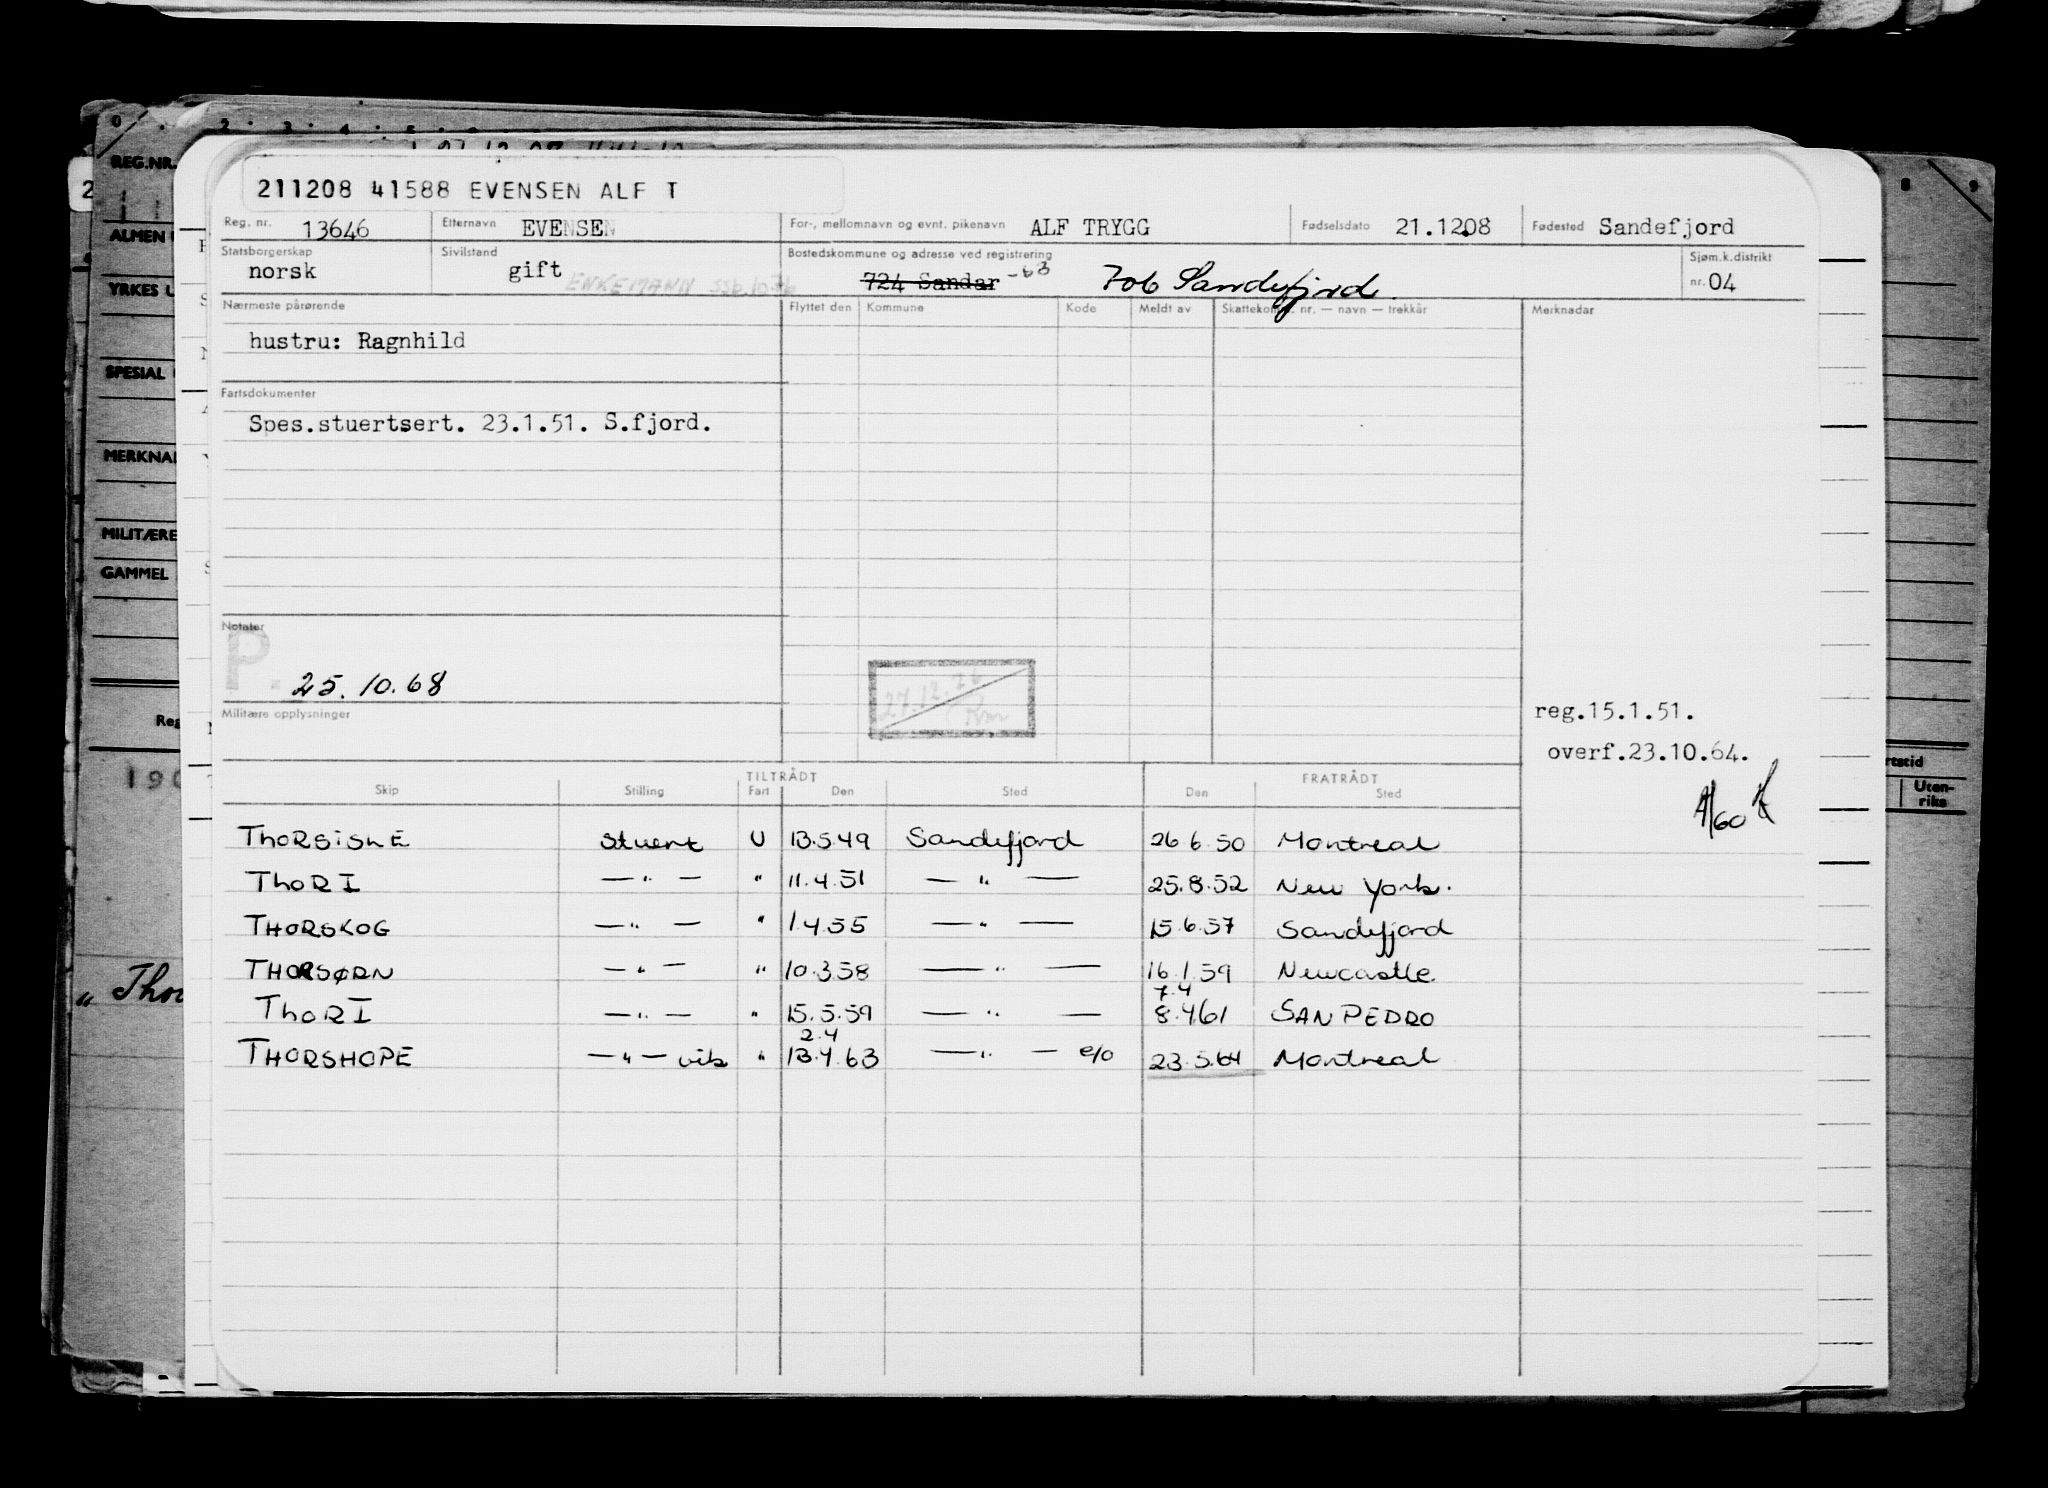 REG.NR.
ALMEN
YRKES
SPESIAL
MERKNA
MILITÆRE
GAMMEL
211208 41588 EVENSEN ALF T
Reg. nr. 13646 Etternavn EVENSEN For-, mellomnavn og evnt. pikenavn ALF TRYGG Fødselsdato 21.12.08 Fødested Sandefjord
Statsborgerskap norsk Sivilstand gift ENKEMANN Bostedskommune og adresse ved registrering 724 Sandar -63 706 Sandefjord. Sjøm.k.distrikt nr. 04
Nærmeste pårørende Flyttet den Kommune Kode Meldt av Skattekom. nr. — navn — trekkår Merknadar
hustru: Ragnhild
Fartsdokumenter
Spes.stuertsert. 23.1.51. S.fjord.
Notater
P. 25.10.68
27.12.76
Militære opplysninger
reg.15.1.51.
overf.23.10.64.
TILTRÅDT FRATRÅDT
Skip Stilling Fart Den Sted Den Sted
THORSISLE stuert U 13.5.49 Sandefjord 26.6.50 Montreal
THOR I —"— " 11.4.51 —"— 25.8.52 New York.
THORSKOG —"— " 1.4.55 —"— 15.6.57 Sandefjord
THORSØRN —"— " 10.3.58 —"— 16.1.59 Newcastle.
7.4
THOR I —"— " 15.5.59 —"— 8.4.61 SAN PEDRO
2.4
THORSHOPE —"— vik " 13.4.63 —"— e/o 23.5.64 Montreal
Uten-
riks